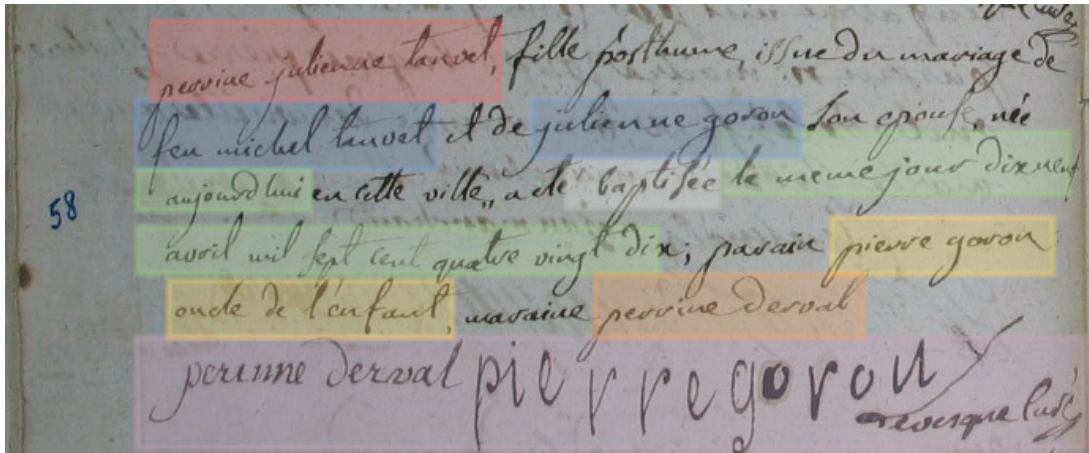 perrine julienne lanvet, fille posthume, issue du mariage de
feu michel lanvet et de julienne goron son epouse, née
aujourd'hui en cette ville, a eté baptisée le meme jour dixneuf
58
avril mil sept cent quatre vingt dix; parain pierre goron
oncle de l'enfant, maraine perrine derval
perinne derval pierre goron